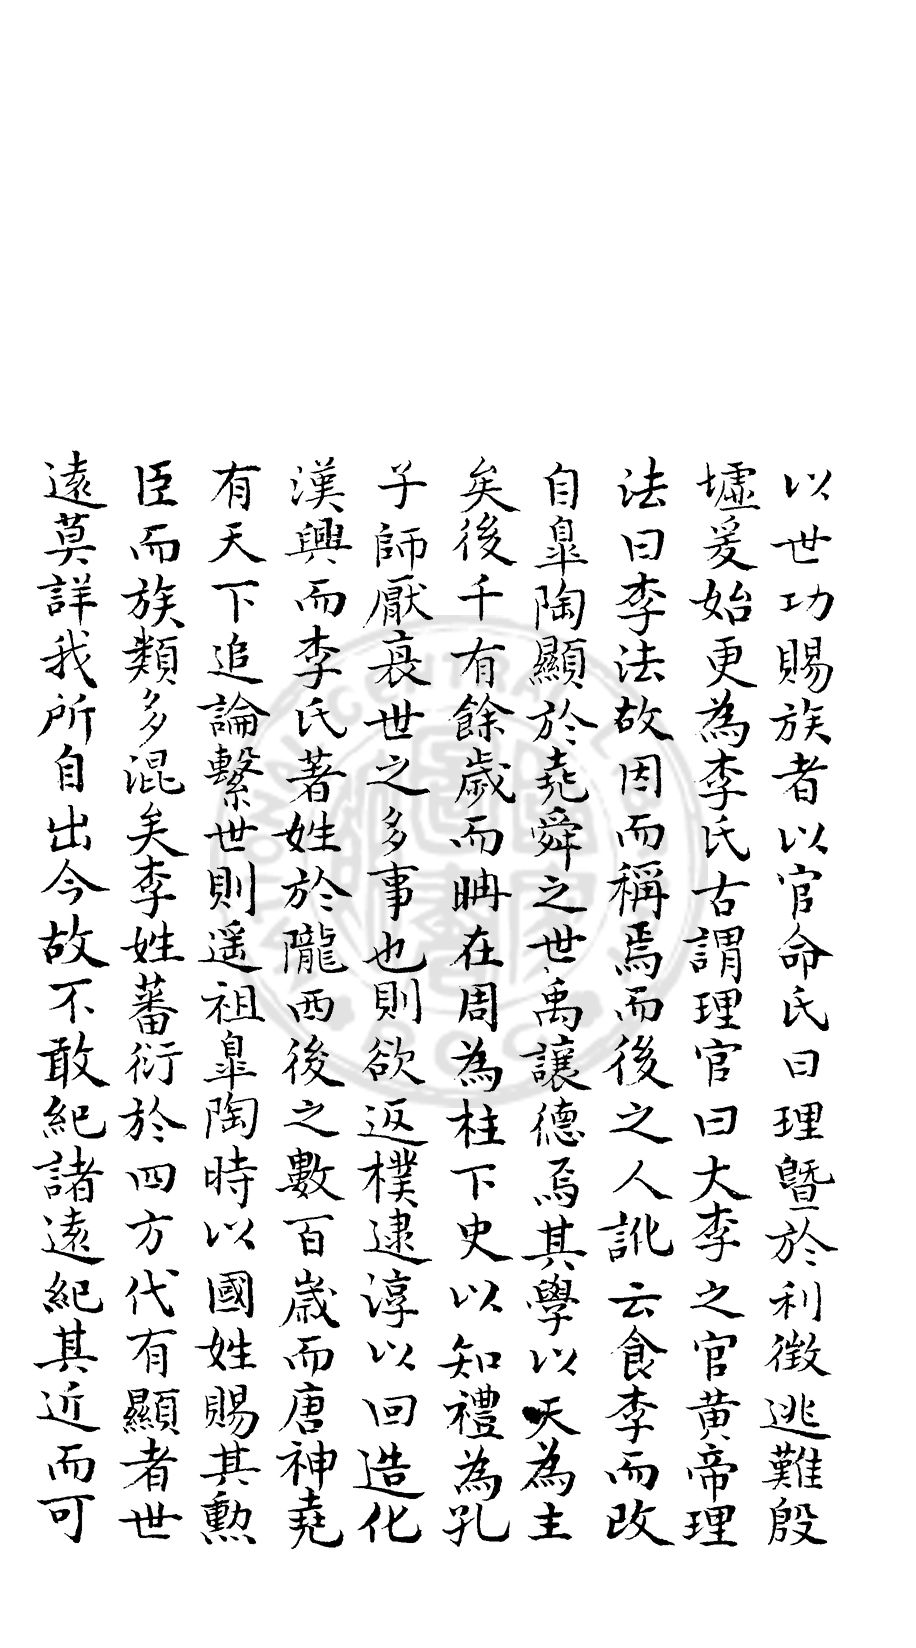 以世功賜族者以官命氏曰理曁於利徵逃難殷
墟爰始更為李氏古謂理官曰大李之官黄帝理
法曰李法故因而稱焉而後之人訛云食李而改
自臯陶顯於堯舜之世禹讓德焉其學以天為主
矣後千有餘歲而耼在周為柱下史以知禮為孔
子師厭衰世之多事也則欲返樸逮淳以回造化
漢興而李氏著姓於隴西後之數百歲而唐神堯
有天下追論繫世則遥祖臯陶時以國姓賜其勲
臣而族類多混矣李姓蕃衍於四方代有顯者世
遠莫詳我所自出今故不敢紀諸遠紀其近而可